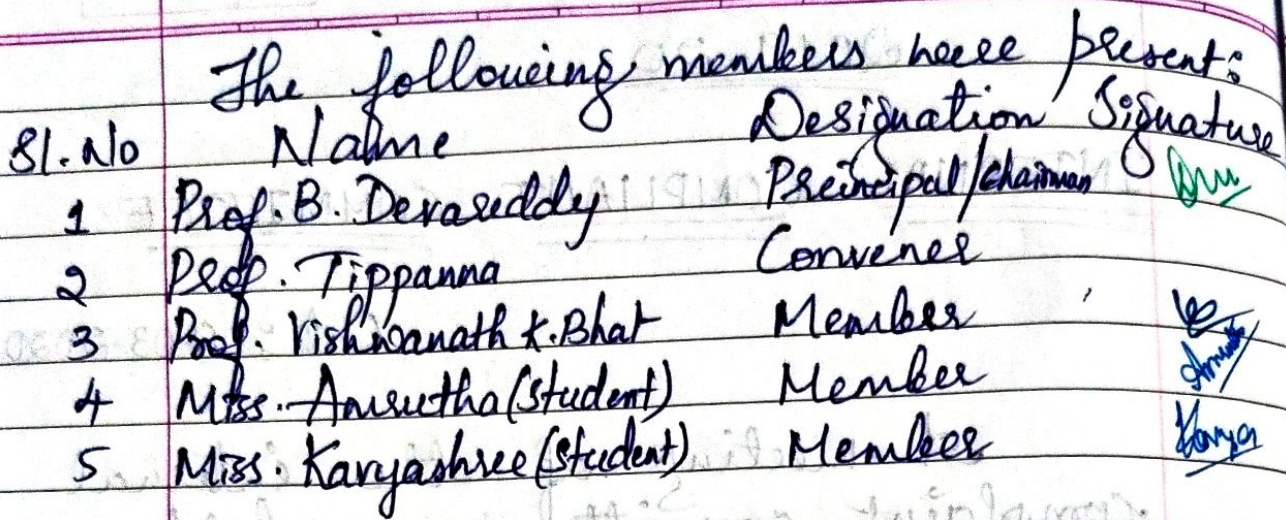 The following members were present:
Sl. No Name Designation Signature
1 Prof. B. Devareddy Principal/Chairman
2 Prof. Tippanna Convener
3 Prof. Vishwanath K. Bhat Member
4 Miss. Amrutha (Student) Member Amrutha
5 Miss. Kavyashree (Student) Member Kavya